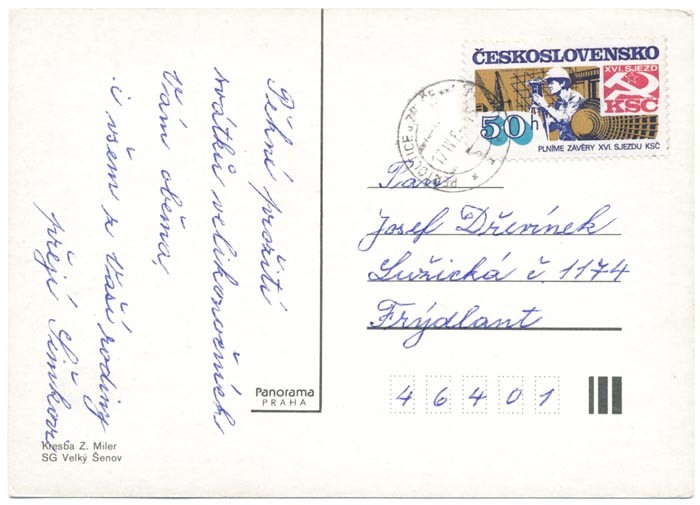 Pěkné prožití
svátků velikonočních
Vám oběma,
i všem z Vaší rodiny
přejí Šimkovi
ČESKOSLOVENSKO
XVI. SJEZD
KSČ
50 h
PLNÍME ZÁVĚRY XVI. SJEZDU KSČ
Pan
Josef Dřevínek
Lužická č. 1174
Frýdlant
46401
Panorama
PRAHA
Kresba Z. Miler
SG Velký Šenov